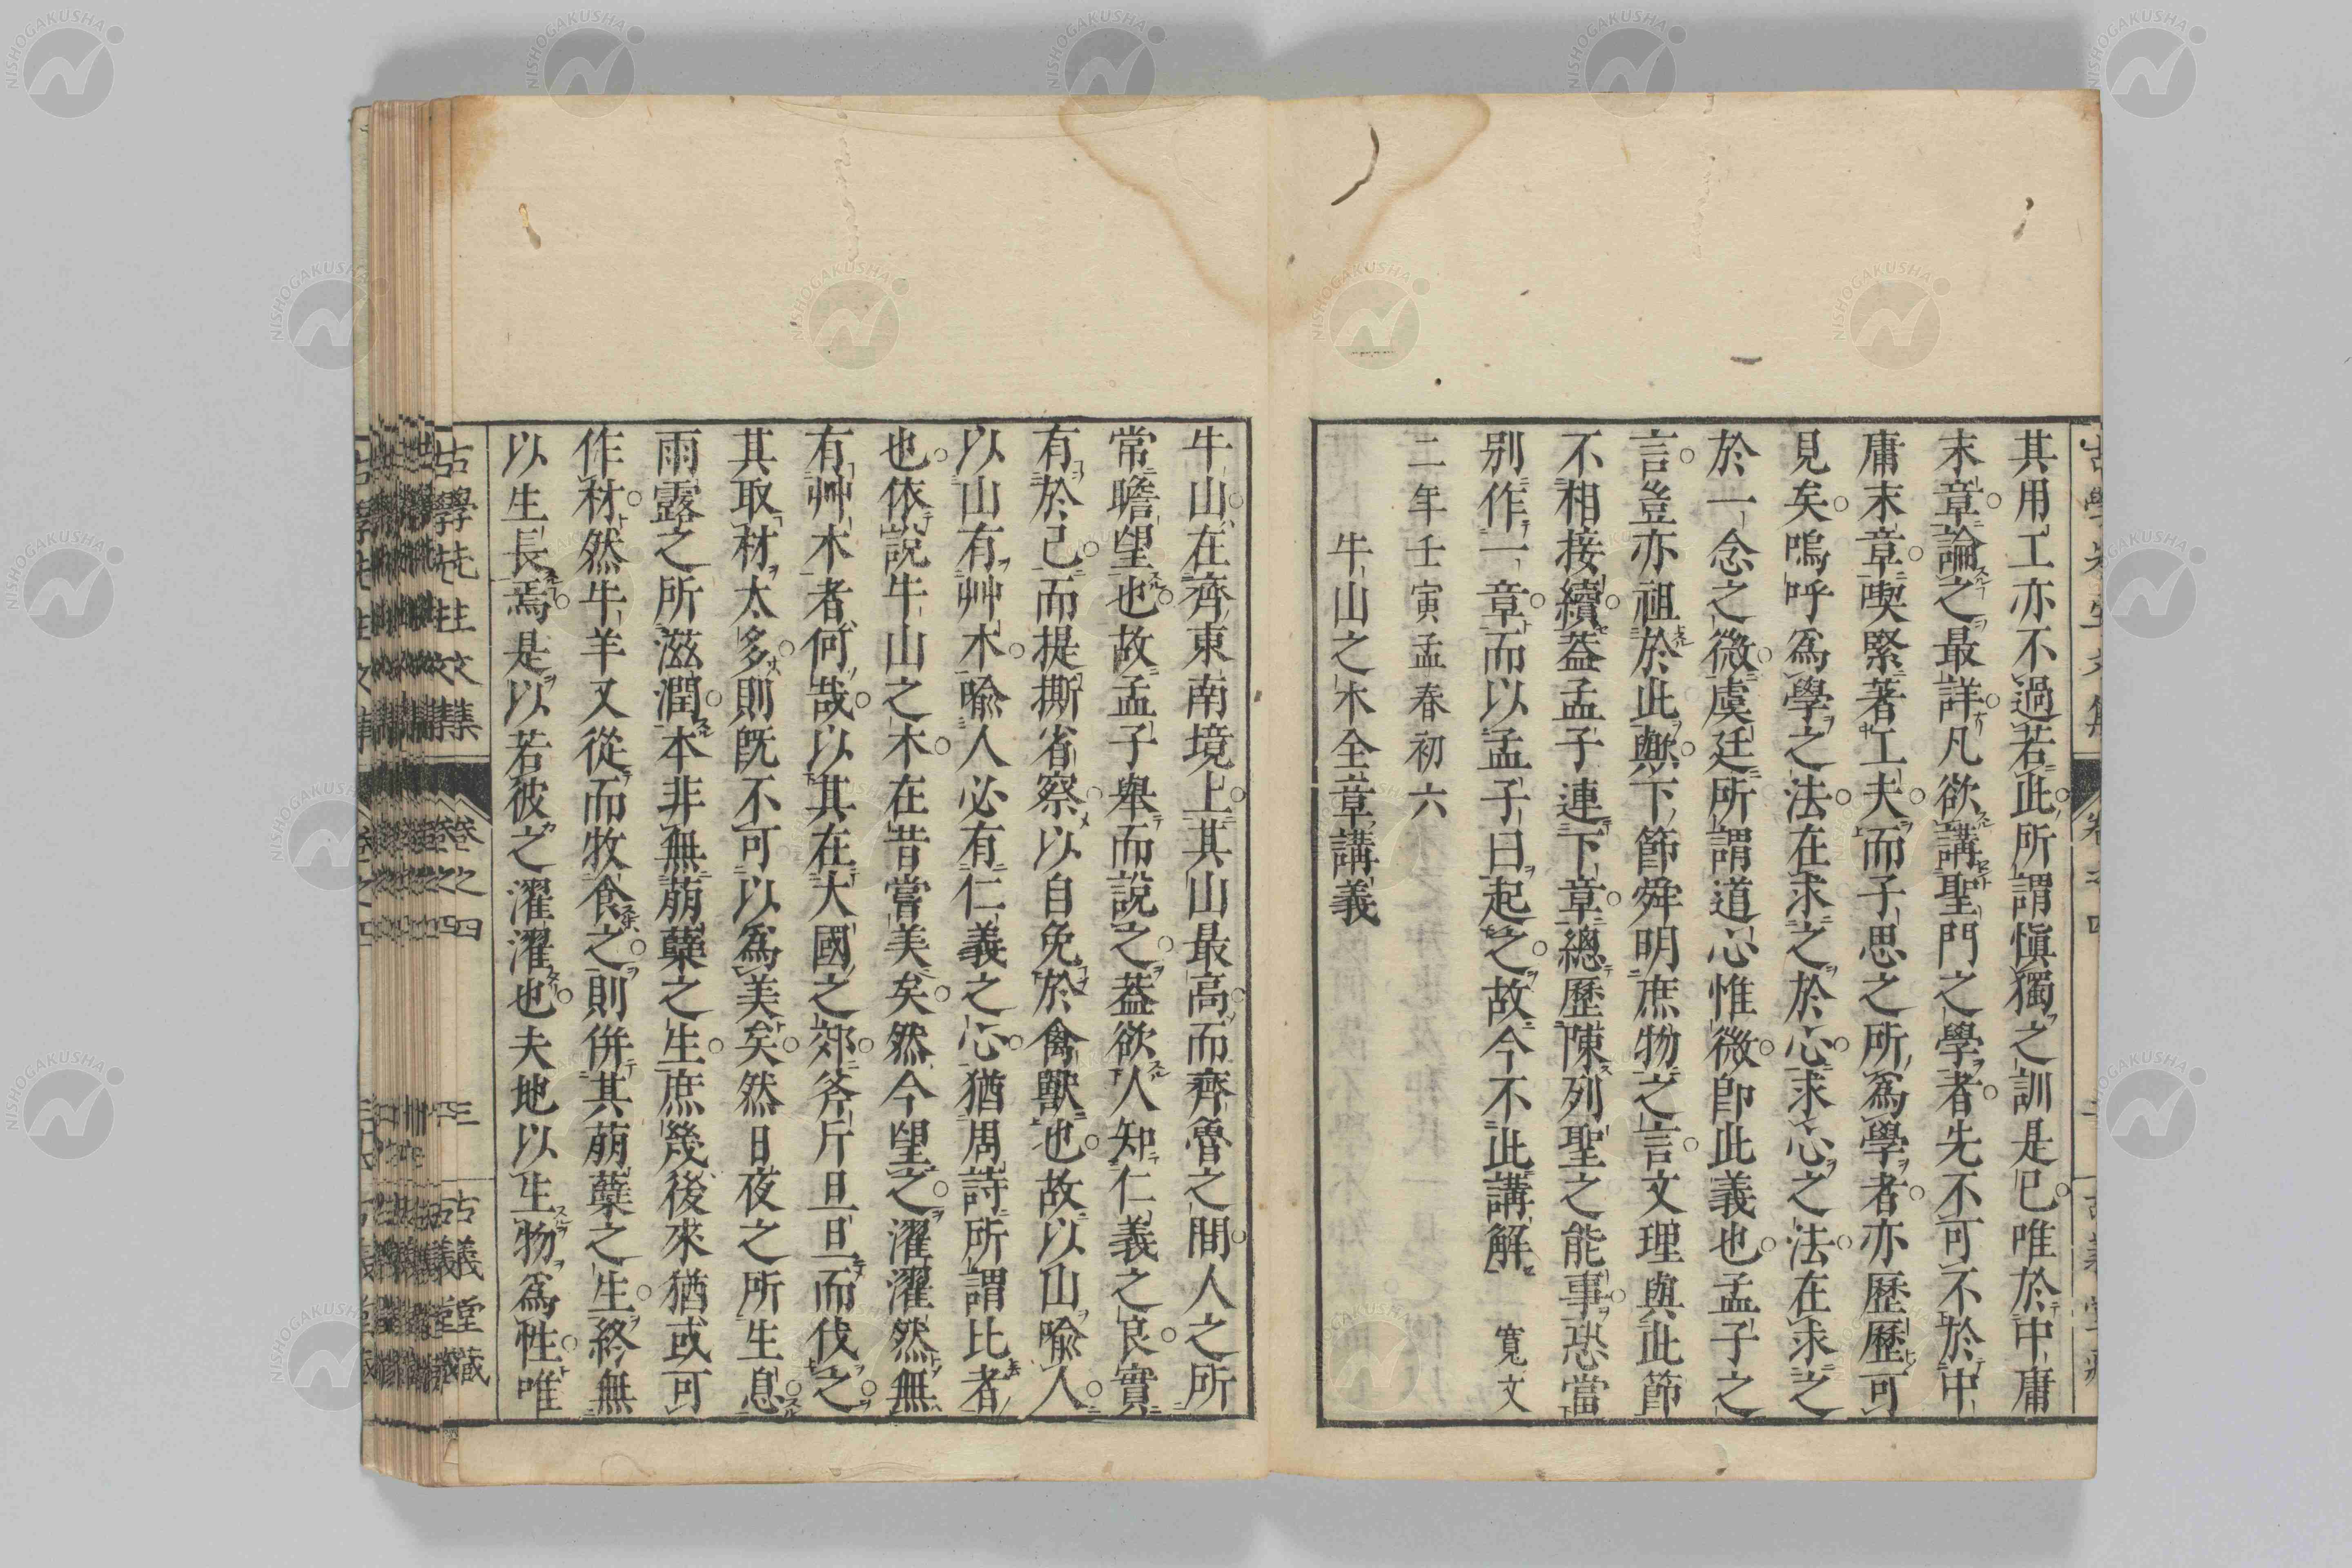 其用工亦不過若此所謂愼獨之訓是已唯於中庸
末章論之最詳凡欲講聖門之學者先不可不於中
庸末章喫緊著工夫而子思之所爲學者亦歷歷可
見矣嗚呼爲學之法在求之於心求心之法在求之
於一念之微虞廷所謂道心惟微卽此義也孟子之
言豈亦祖於此歟下節舜明庶物之言文理與此節
不相接續蓋孟子連下章總歷陳列聖之能事恐當
別作一章而以孟子曰起之故今不此講解 寬文
二年壬寅孟春初六
牛山之木全章講義
牛山在齊東南境上其山最高而齊魯之間人之所
常瞻望也故孟子舉而說之蓋欲人知仁義之良實
有於己而提撕省察以自免於禽獸也故以山喩人
以山有艸木喩人必有仁義之心猶周詩所謂比者
也依說牛山之木在昔嘗美矣然今望之濯濯然無
有艸木者何哉以其在大國之郊斧斤旦旦而伐之
其取材太多則旣不可以爲美矣然日夜之所生息
雨露之所滋潤本非無萠蘖之生庶幾後來猶或可
作材然牛羊又從而牧食之則倂其萠蘖之生終無
以生長焉是以若彼之濯濯也夫地以生物爲性唯
古學先生文集 卷之四 古義堂藏